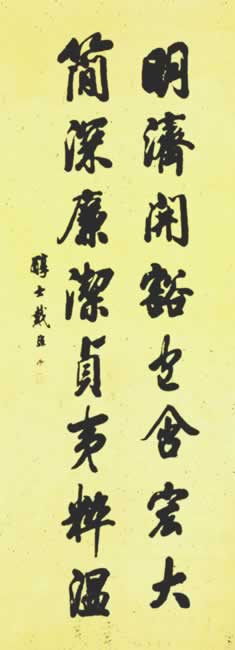 明濟開豁包含宏大
簡深廉潔貞夷粹溫
醇士戴熙